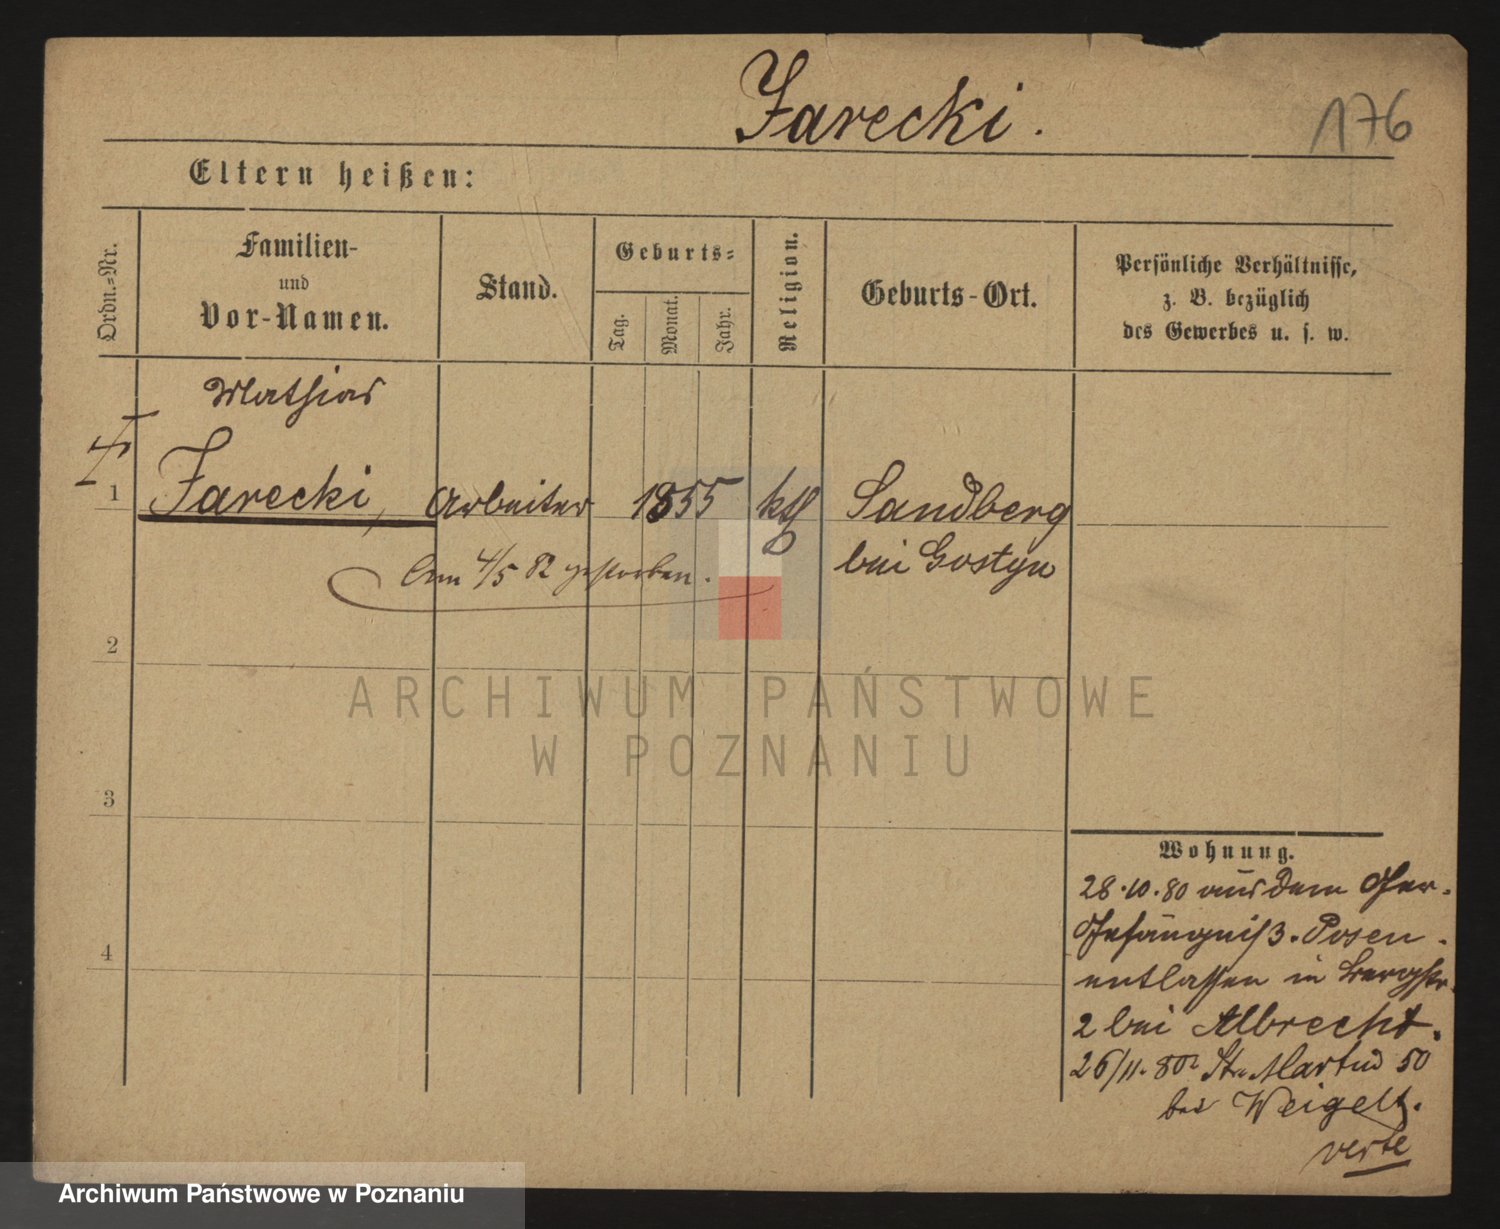 Jarecki.
176
Eltern heißen:
Ordn.-Nr.
Familien-
und
Vor-Namen.
Stand.
Geburts-
Tag.
Monat.
Jahr.
Religion.
Geburts-Ort.
Persönliche Verhältnisse,
z. B. bezüglich
des Gewerbes u. s. w.
Mathias
1 Jarecki, Arbeiter 1855 kth Sandberg
bei Gostyn
Am 4/5 82 gestorben.
2
3
4
ARCHIWUM PAŃSTWOWE
W POZNANIU
Wohnung.
28.10.80 aus dem Ger-
Gefängniß. Posen
entlassen in Bergstr.
2 bei Albrecht.
26/11. 80 St. Martin 50
bei Weigelt.
verte
Archiwum Państwowe w Poznaniu